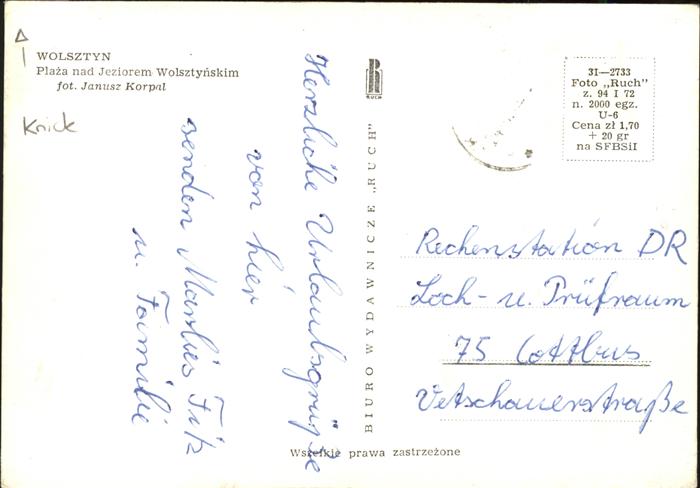 WOLSZTYN
Plaża nad Jeziorem Wolsztyńskim
fot. Janusz Korpal
Knick
Herzliche Urlaubsgrüße
von hier
senden Marlies
u. Familie
RUCH
BIURO WYDAWNICZE „RUCH"
31—2733
Foto „Ruch"
z. 94 I 72
n. 2000 egz.
U-6
Cena zł 1,70
+ 20 gr
na SFBSiI
Rechenstation DR
Loch- u. Prüfraum
75 Cottbus
Vetschauerstraße
Wszelkie prawa zastrzeżone